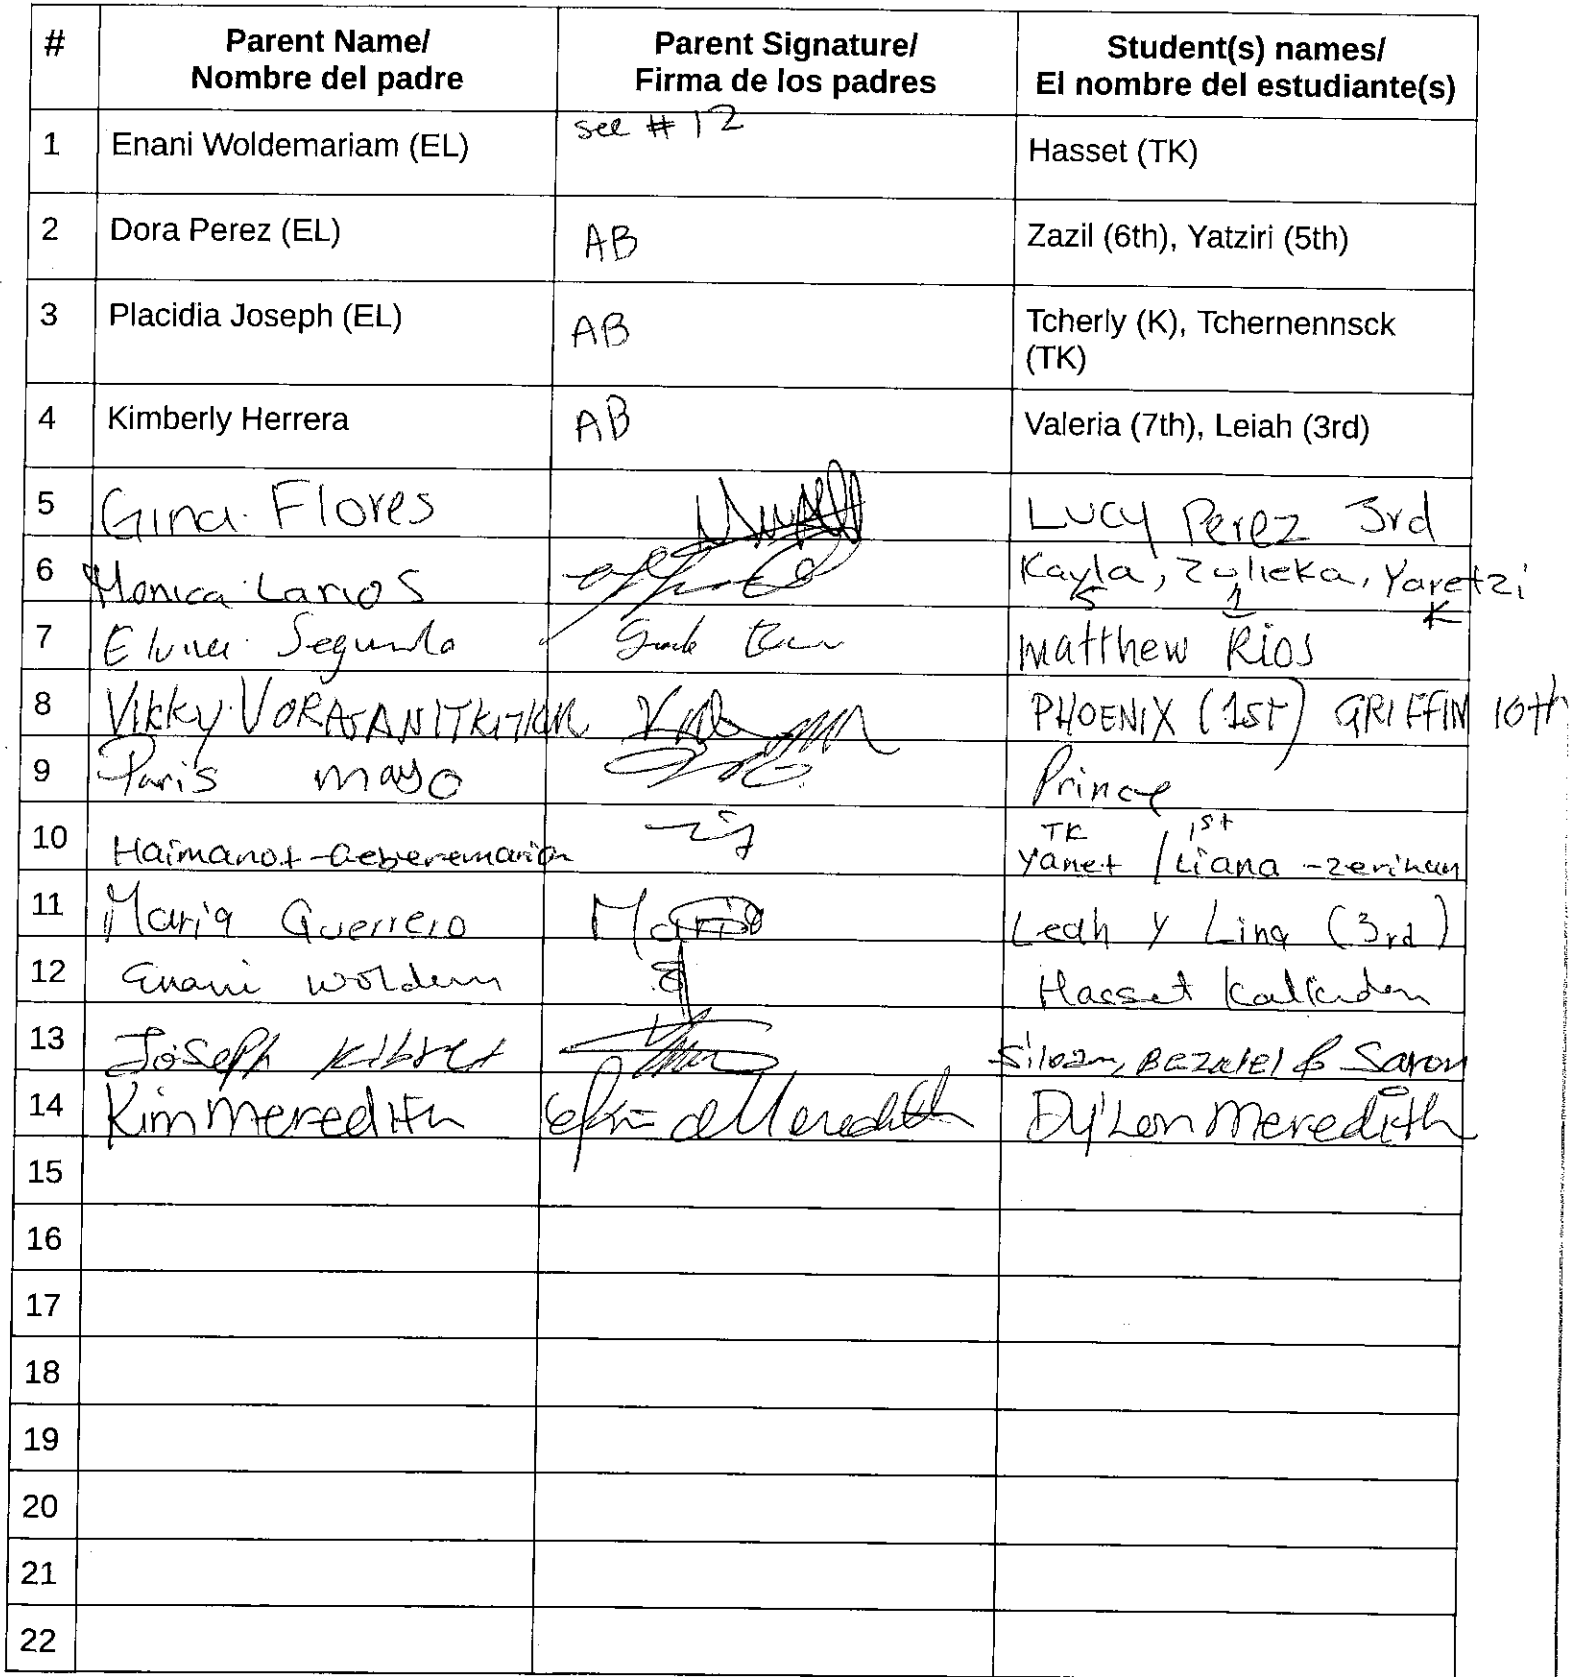 # Parent Name/ Parent Signature/ Student(s) names/
Nombre del padre Firma de los padres El nombre del estudiante(s)
1 Enani Woldemariam (EL) see # 12 Hasset (TK)
2 Dora Perez (EL) AB Zazil (6th), Yatziri (5th)
3 Placidia Joseph (EL) AB Tcherly (K), Tchernennsck
(TK)
4 Kimberly Herrera AB Valeria (7th), Leiah (3rd)
5 Gina Flores Lucy Perez 3rd
6 Monica Larios Kayla, Zulieka, Yaretzi
5 1 K
7 Segundo Matthew Rios
8 Vikky PHOENIX (1ST) GRIFFIN 10th
9 Paris mayo Prince
TK 1st
10 Haimanot - Yanet / Liana - zerihun
11 Maria Guerrero Maria Leah y Lina (3rd)
12 Enani Hasset
13 Joseph Kibret Siloam, BEZALEL & Saron
14 Kim Meredith Meredith Dy'Lon Meredith
15
16
17
18
19
20
21
22